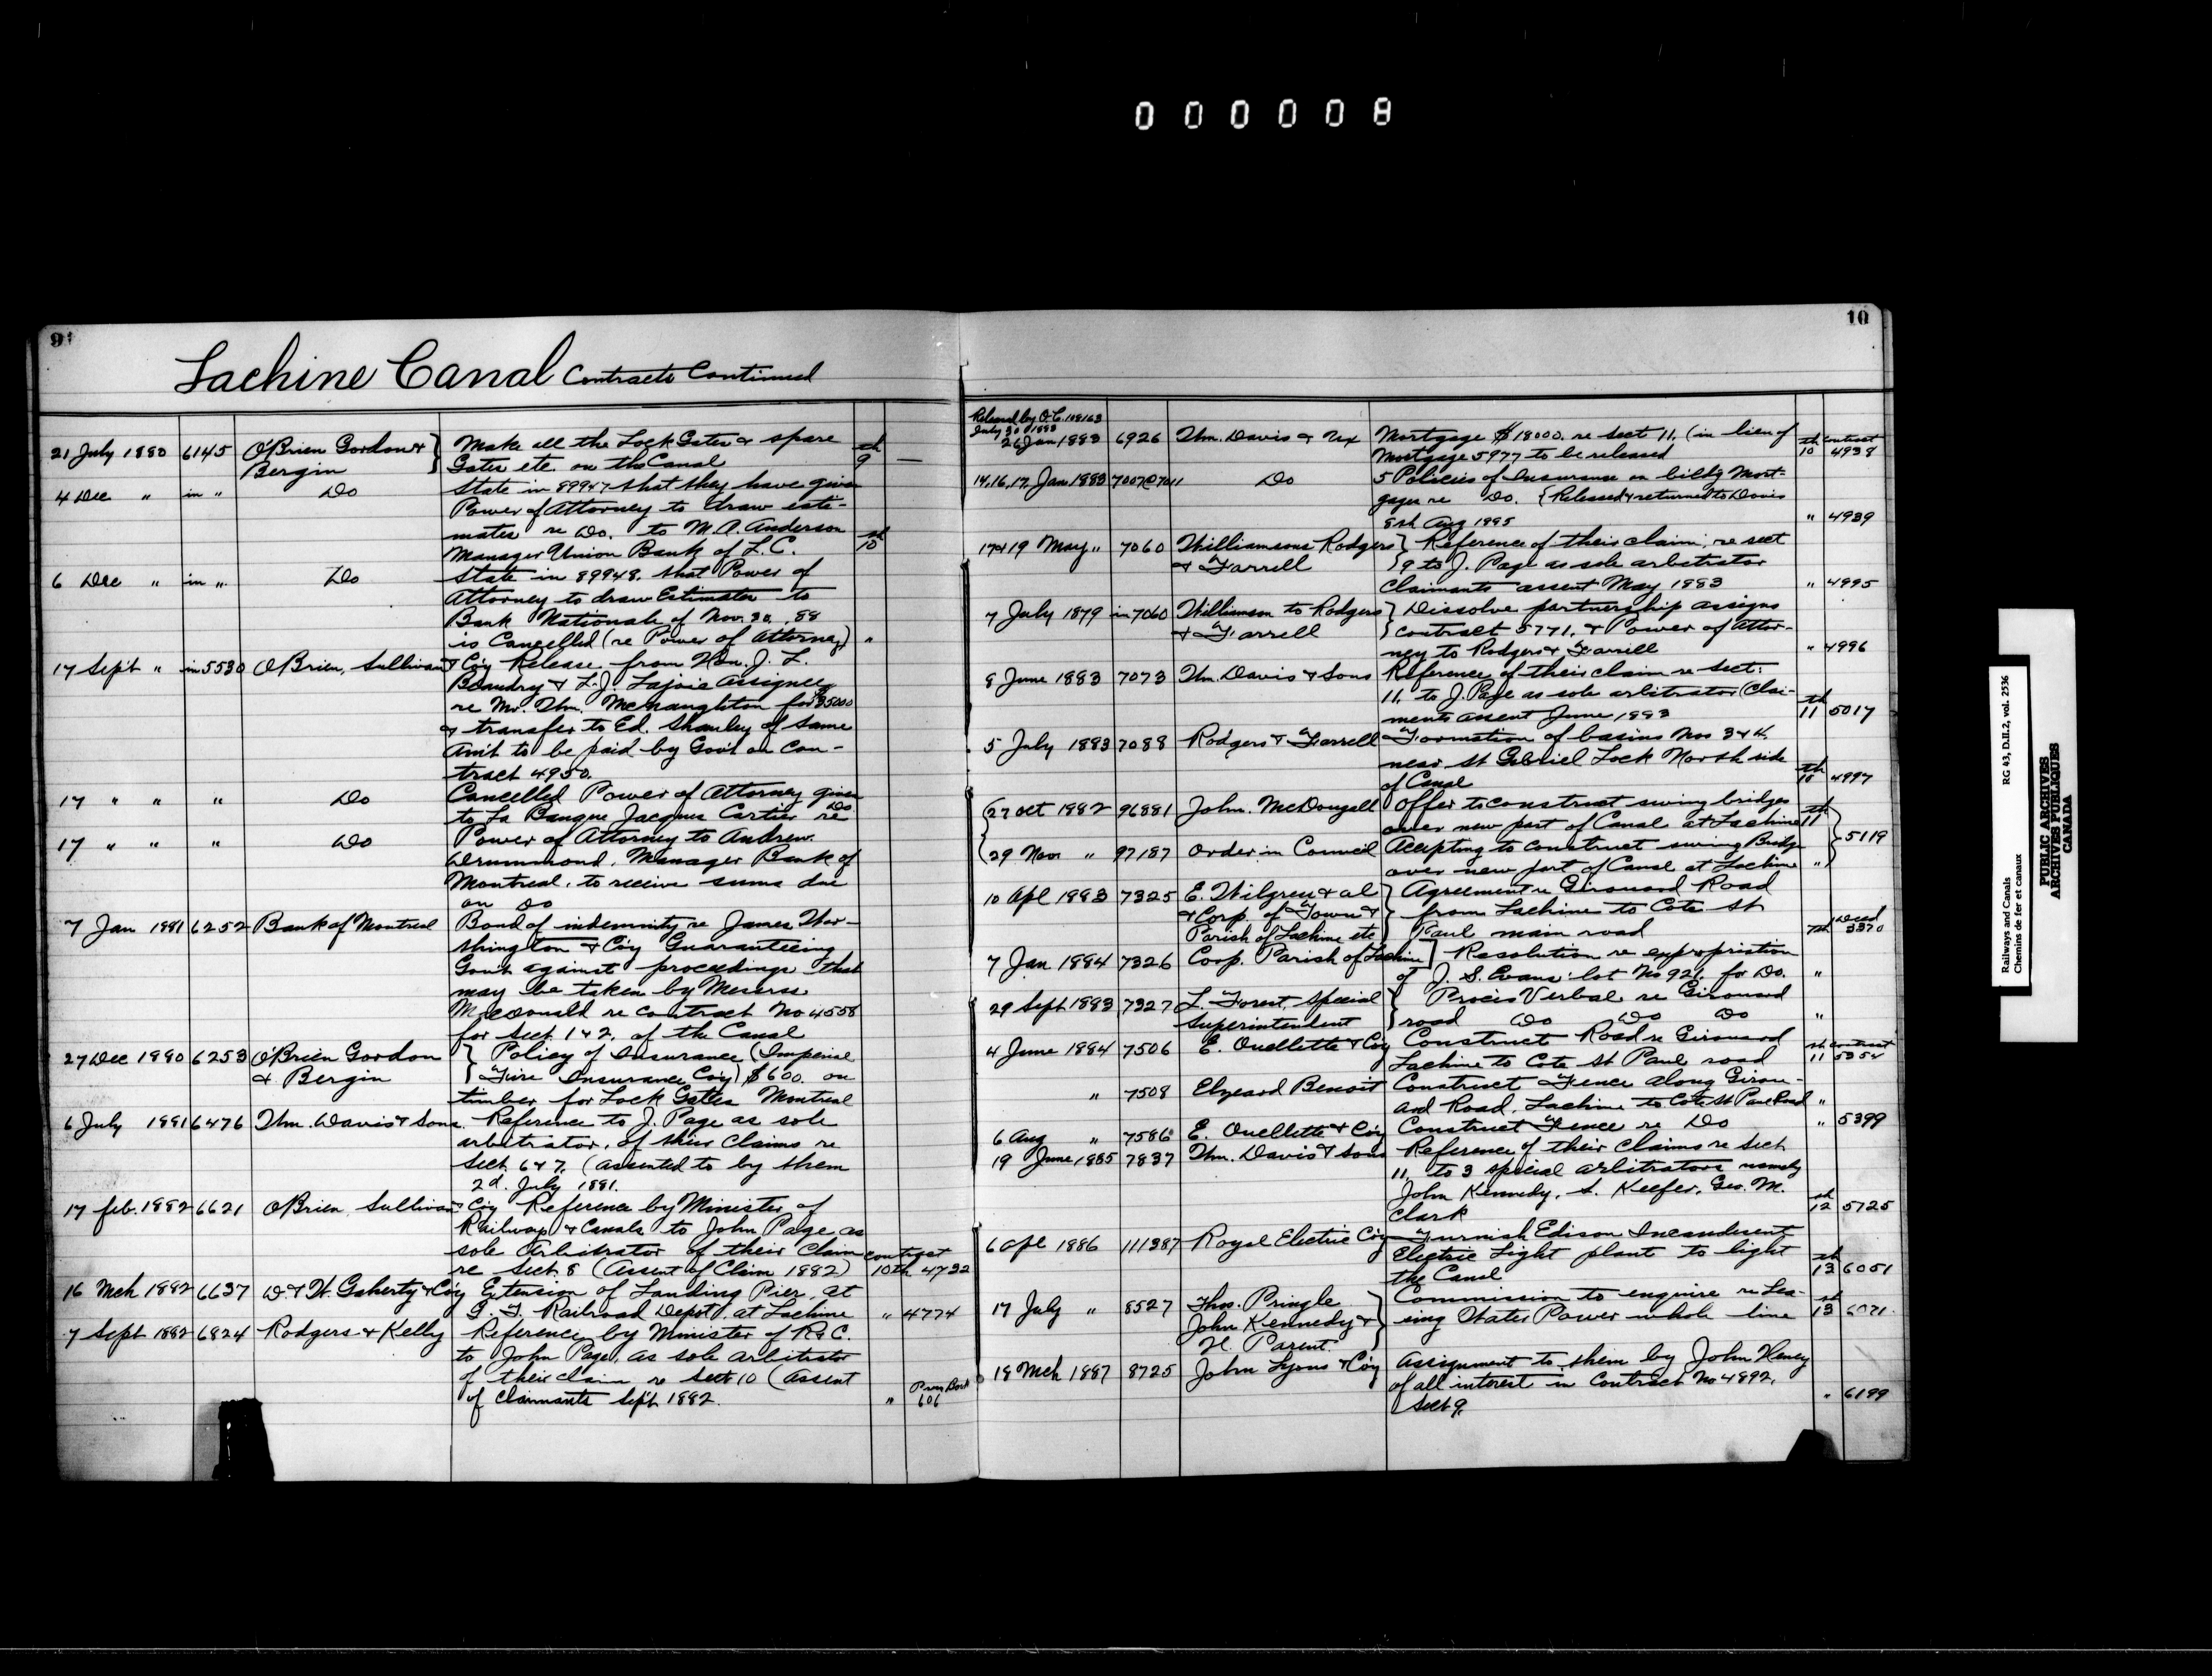 0 0 0 0 0 8
9
Lachine Canal Contracts Continued
21 July 1880 6145 O'Brien Gordon & Bergin } Make all the Lock Gates & spare
Gates etc. on the Canal 9th —
4 Dec " in " Do State in 89947 that they have given
Power of Attorney to draw esti-
mates re Do. to W. A. Anderson
Manager Union Bank of L. C. 10th
6 Dec " in " Do State in 89948. that Power of
Attorney to draw Estimates to
Bank Nationale of Nov. 30, 88
is Cancelled (re Power of Attorney) "
17 Sept " in 5530 O'Brien, Sullivan & Co'y Release from Hon. J. L.
Beaudry & L. J. Lajoie Assignees
re Mr. Thm. McNaughton for $5000
& transfer to Ed. Shanley of same
Am't to be paid by Gov't on Con-
tract 4950.
17 " " " Do Cancelled Power of Attorney given
to La Banque Jacques Cartier re Do
17 " " " Do Power of Attorney to Andrew
Drummond, Manager Bank of
Montreal, to receive sums due
on Do
7 Jan 1881 6252 Bank of Montreal Bond of indemnity re James Wor-
thington & Co'y Guaranteeing
Gov't against proceedings that
may be taken by Messrs
McDonald re contract No 4558
for Sect. 1 & 2. of the Canal
27 Dec 1880 6253 O'Brien Gordon & Bergin { Policy of Insurance (Imperial
Fire Insurance Co'y) $600. on
timber for Lock Gates Montreal
6 July 1881 6476 Thm. Davis & Sons. Reference to J. Page as sole
arbitrator, of their Claims re
Sect. 6 & 7. (assented to by them
2d. July 1881.
17 feb. 1882 6621 O'Brien, Sullivan & Co'y Reference by Minister of
Railways & Canals to John Page, as
sole Arbitrator of their Claim contract
re Sect. 8 (Assent of Claim 1882) 10th 4732
16 Mch 1882 6637 D. & W. Gaherty & Co'y Extension of Landing Pier, at
G. T. Railroad Depot, at Lachine " 4774
7 Sept 1882 6824 Rodgers & Kelly Reference by Minister of R & C.
to John Page, as sole arbitrator
of their claim re Sect 10 (Assent
of Claimants Sept. 1882. " 606
10
Released by O.C. 108163
July 30 1883
26 Jan 1883 6926 Thm. Davis & Ux Mortgage $18000. re sect 11. (in lieu of
Mortgage 5977 to be released 10th contract 4938
14, 16, 17, Jan 1883 7007 @ 7011 Do 5 Policies of Insurance on bildg Mort-
gages re Do. { Released & returned to Davis
8th Aug 1895 " 4939
17 & 19 May " 7060 Williamsons Rodgers & Farrell } Reference of their claim, re sect
9 to J. Page as sole arbitrator
Claimants assent May 1883 " 4995
7 July 1879 in 7060 Williamson to Rodgers & Farrell } Dissolve partnership assigns
contract 5771. & Power of Attor-
ney to Rodgers & Farrell " 4996
8 June 1883 7073 Thm. Davis & Sons Reference of their claim re Sect:
11, to J. Page as sole arbitrator (Clai-
ments assent June 1883 11th 5017
5 July 1883 7088 Rodgers & Farrell Formation of basins Nos 3 & 4.
near St Gabriel Lock North side
of Canal 10th 4997
27 Oct 1882 96881 John McDougall Offer to construct swing bridges
over new part of Canal at Lachine 11th } 5119
29 Nov. " 97187 Order in Council Accepting to construct swing Bridge
over new part of Canal at Lachine "
10 Apl 1883 7325 E. Wilgress & al & Corp. of Town & Parish of Lachine etc } Agreement re Girouard Road
from Lachine to Cote St
Paul main road 7th Deed 3370
7 Jan 1884 7326 Coop. Parish of Lachine ] Resolution re expropriation
of J. S. Evans' lot No 921. for Do. "
29 Sept 1883 7327 L. Forest, special Superintendent } Procès Verbal re Girouard
road Do Do Do "
4 June 1884 7506 E. Ouellette & Co'y Construct Road re Girouard
Lachine to Cote St Paul road 11th contract 5354
" 7508 Elzeard Benoit Construct Fence along Girou-
ard Road, Lachine to Cote St Paul Road "
6 Aug " 7586 E. Ouellette & Co'y Construct Fence re Do " 5399
19 June 1885 7837 Thm. Davis & Sons Reference of their Claims re Sect
11, to 3 special arbitrators namely
John Kennedy, S. Keefer, Geo. M.
Clark 12th 5725
6 Apl 1886 111387 Royal Electric Co'y Furnish Edison Incandescent
Electric Light plant to light
the Canal 13th 6051
17 July " 8527 Thos. Pringle John Kennedy & H. Parent. } Commission to enquire re Lea-
sing Water Power whole line 13th 6071
18 Mch 1887 8725 John Lyons & Co'y Assignment to them by John Henry
of all interest in Contract No 4892,
Sect 9. " 6199
Railways and Canals RG 43, D.II.2, vol. 2536
Chemins de fer et canaux
PUBLIC ARCHIVES
ARCHIVES PUBLIQUES
CANADA